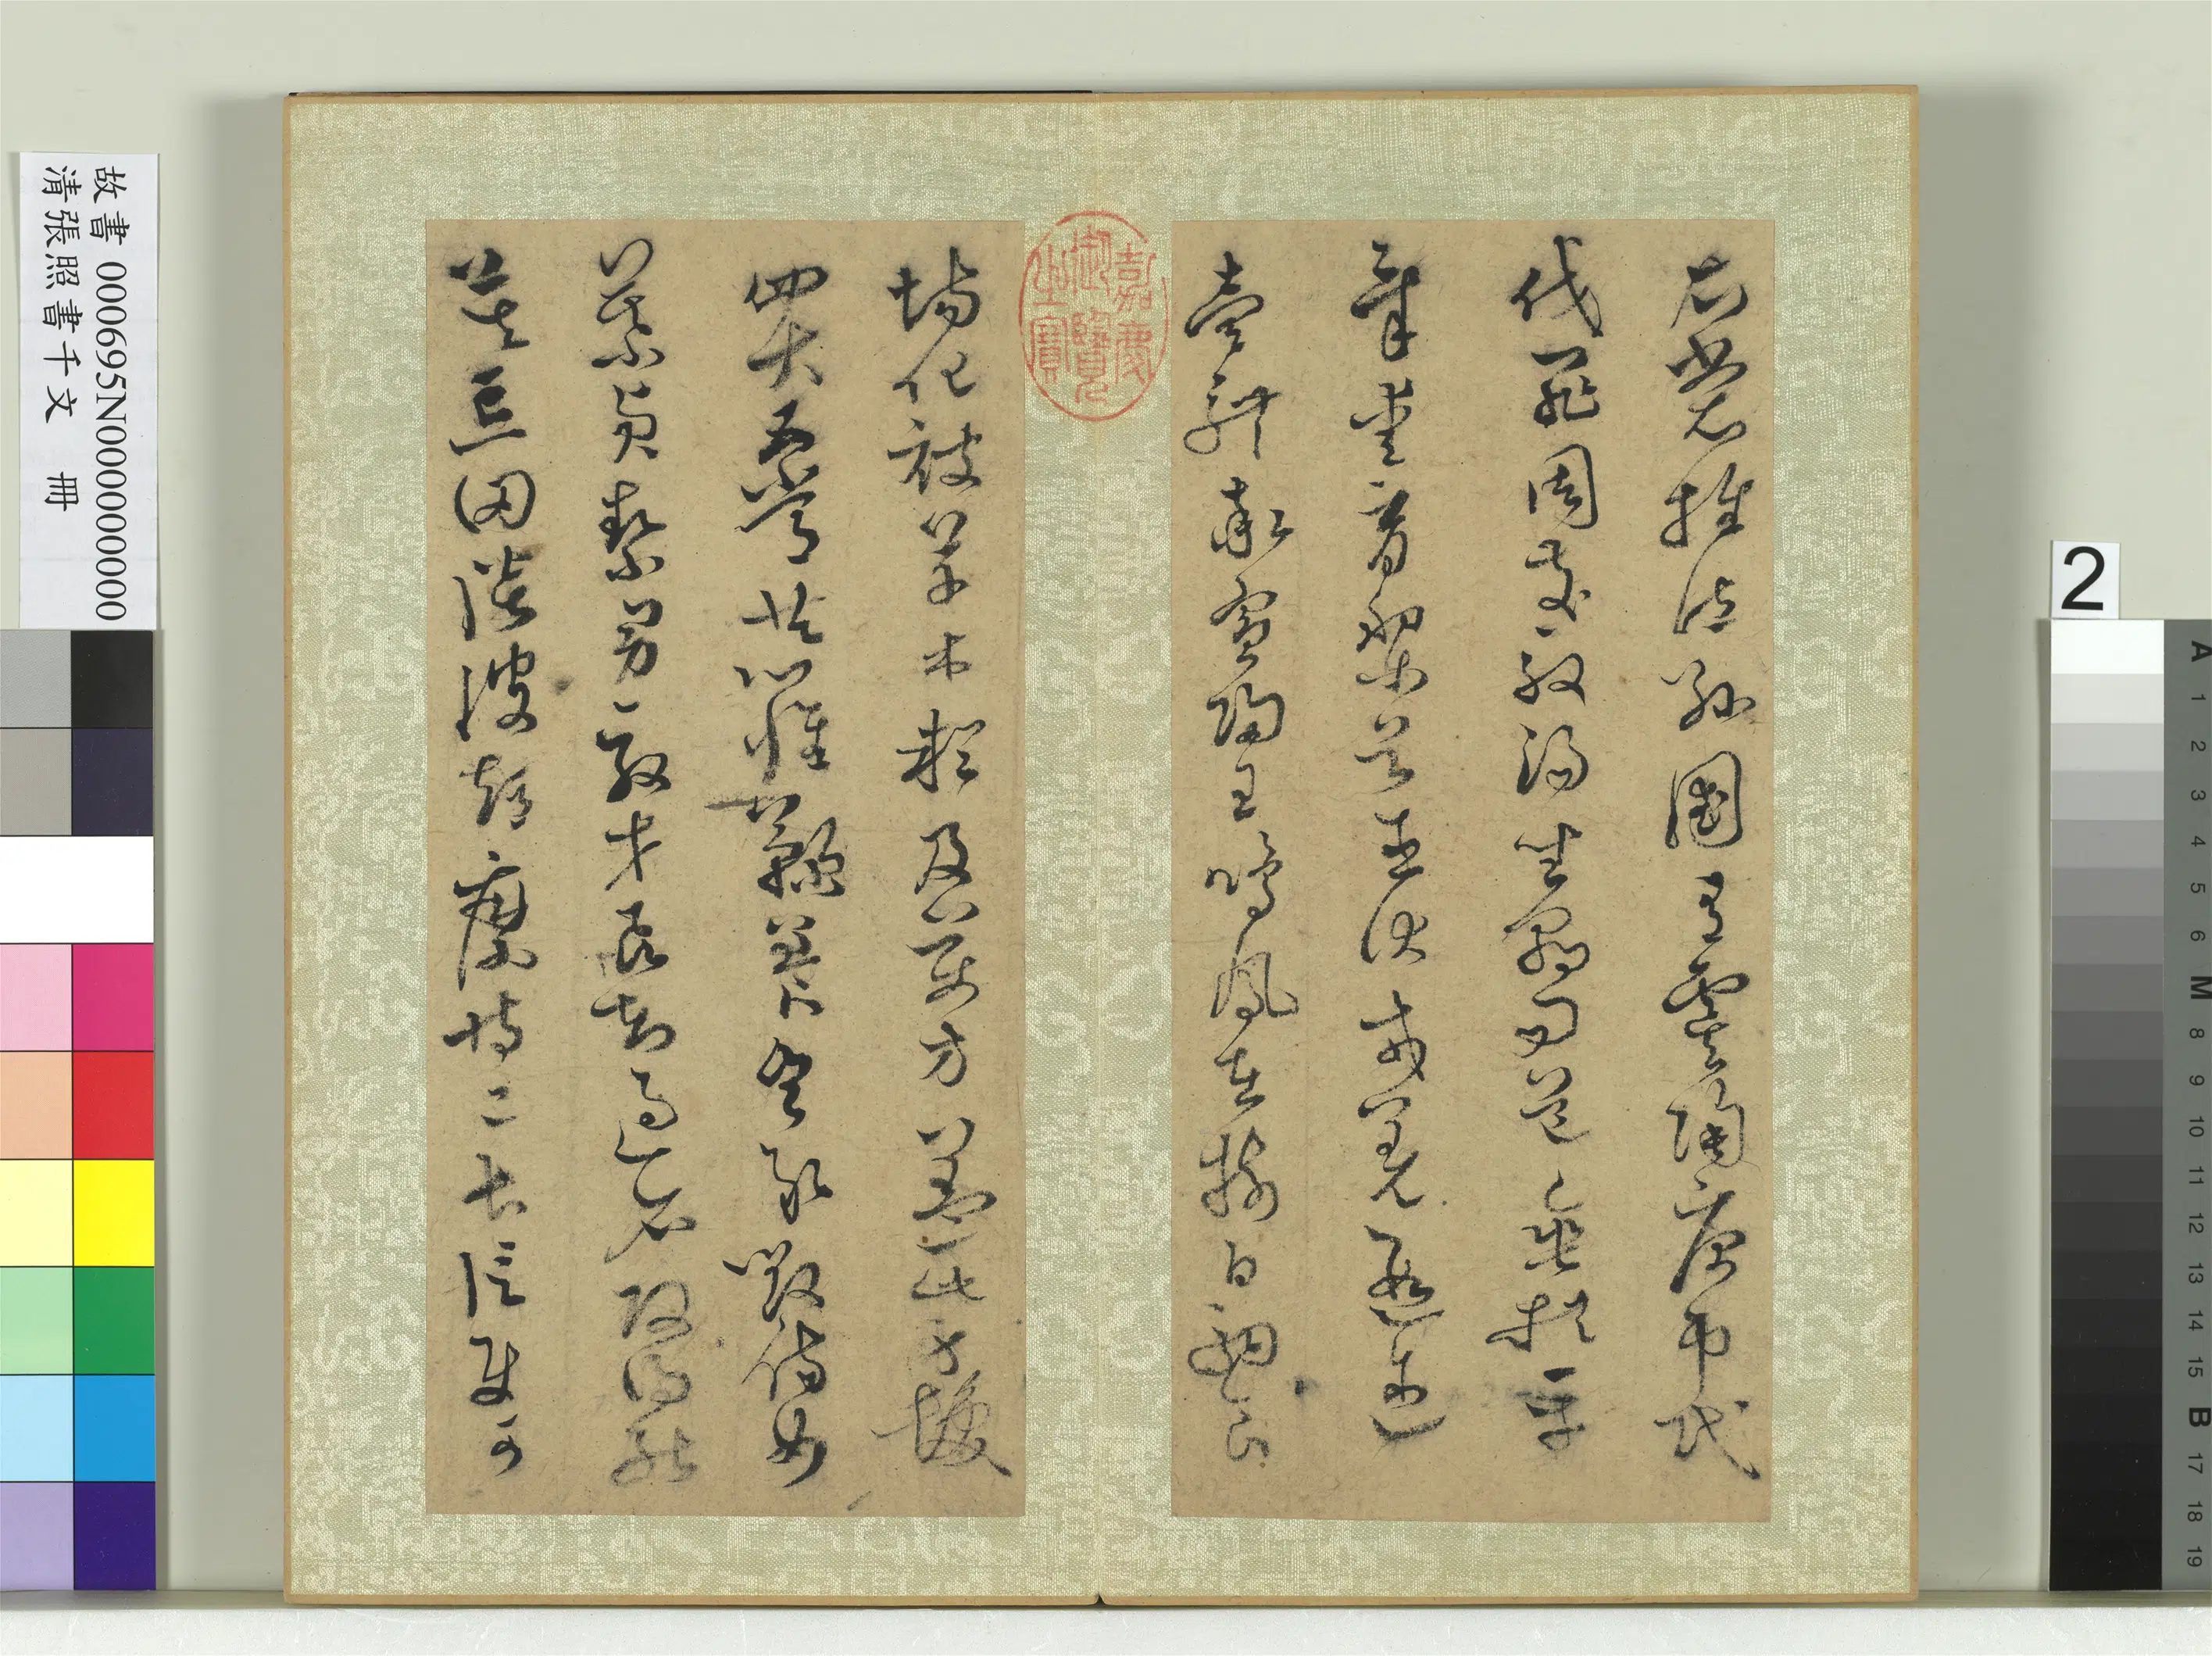 衣裳推位遜國有虞陶唐弔民
伐罪周發殷湯坐朝問道垂拱平
章愛育黎首臣伏戎羌遐邇
壹體率賓歸王鳴鳳在樹白駒食
嘉慶
御覽
之寶
場化被草木賴及萬方蓋此身髮
四大五常恭惟鞠養豈敢毀傷女
慕貞絜男效才良知過必改得能
莫忘罔談彼短靡恃己長信使可
故書 000695N000000000
清張照書千文 冊
2
A 1 2 3 4 5 6 M 8 9 10 11 12 13 14 15 B 17 18 19